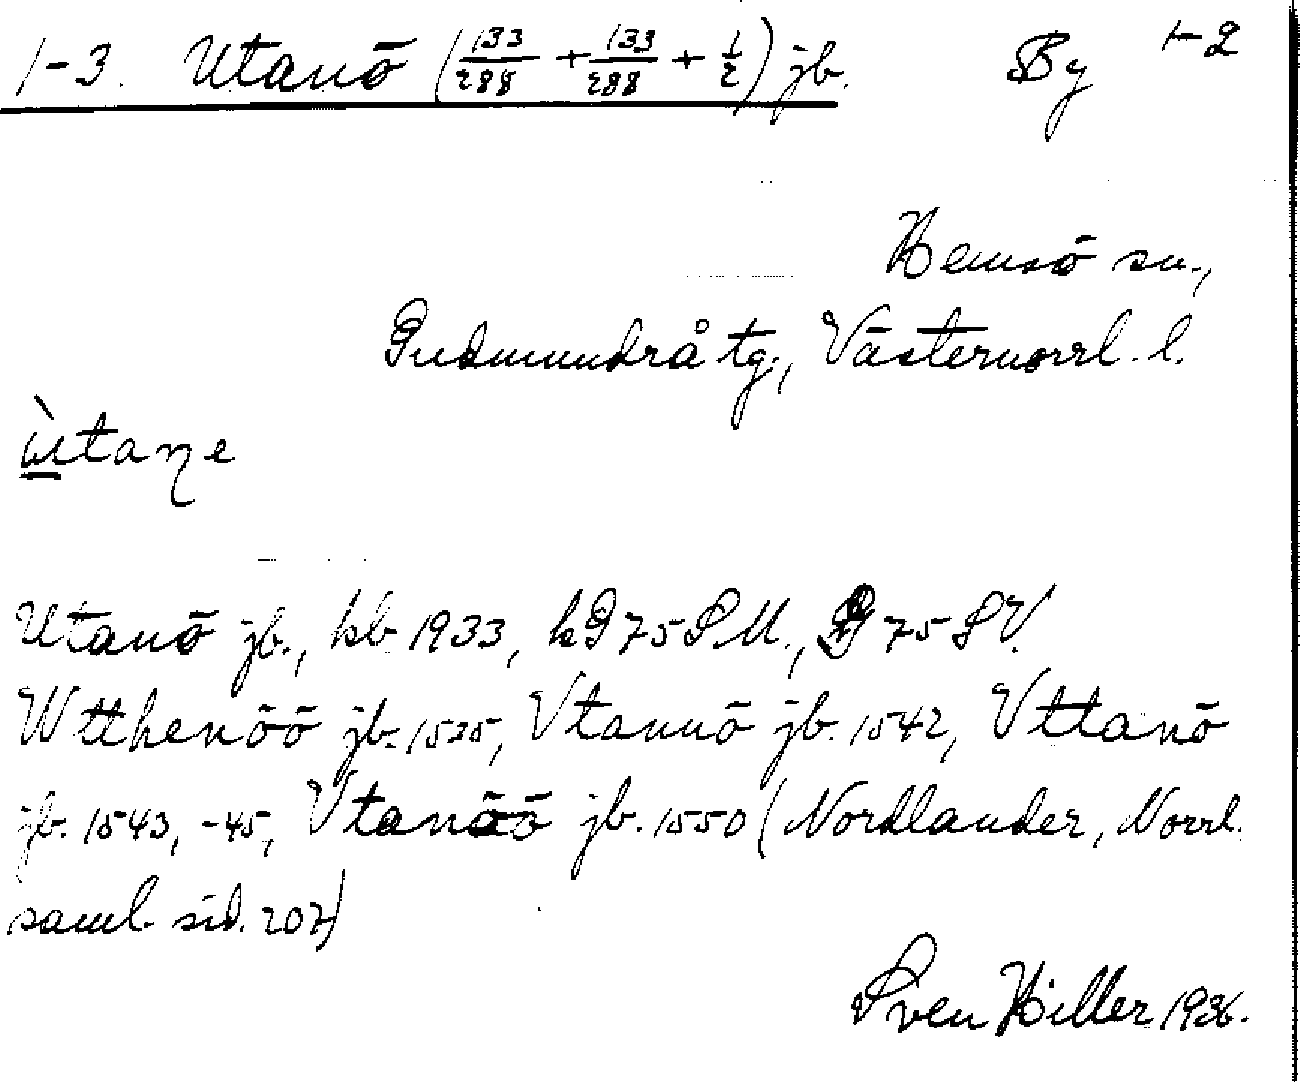 1-3. Utanö (133/288 + 133/288 + 1/2) jb. By 1-2
Hemsö sn.,
Gudmundrå tg., Västernorrl. l.
ùtaŋe
Utanö jb., kb 1933, kG 75 SM., G 75 SV.
Wtthenöö jb. 1535, Vtannö jb. 1542, Vttanö
jb. 1543, -45, Vtanöö jb. 1550 (Nordlander, Norrl.
saml. sid. 207)
Sven Hiller 1936.